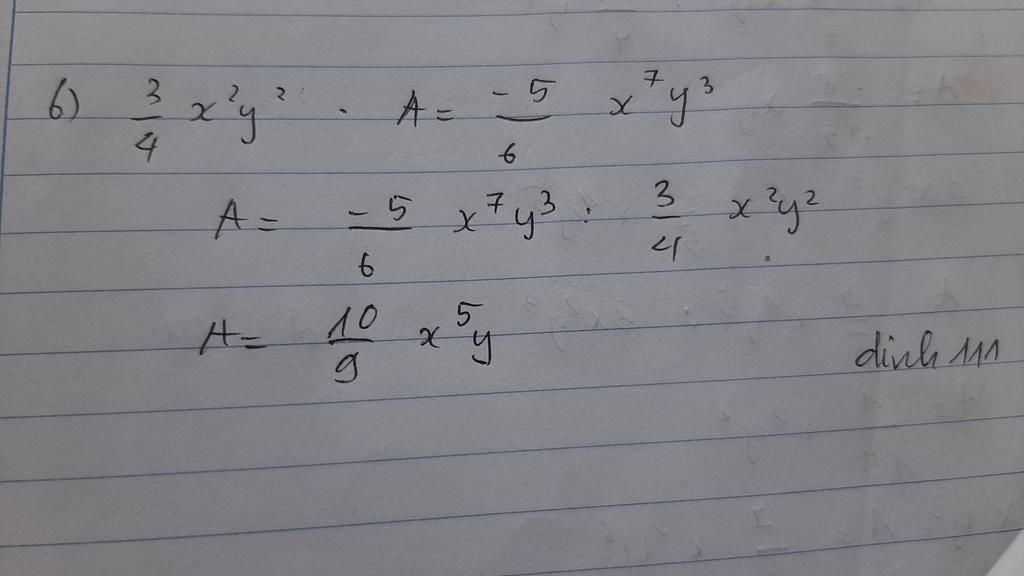 6) 3/4 x²y² . A = -5/6 x⁷y³
A = -5/6 x⁷y³ : 3/4 x²y²
A = 10/9 x⁵y
dinh 111